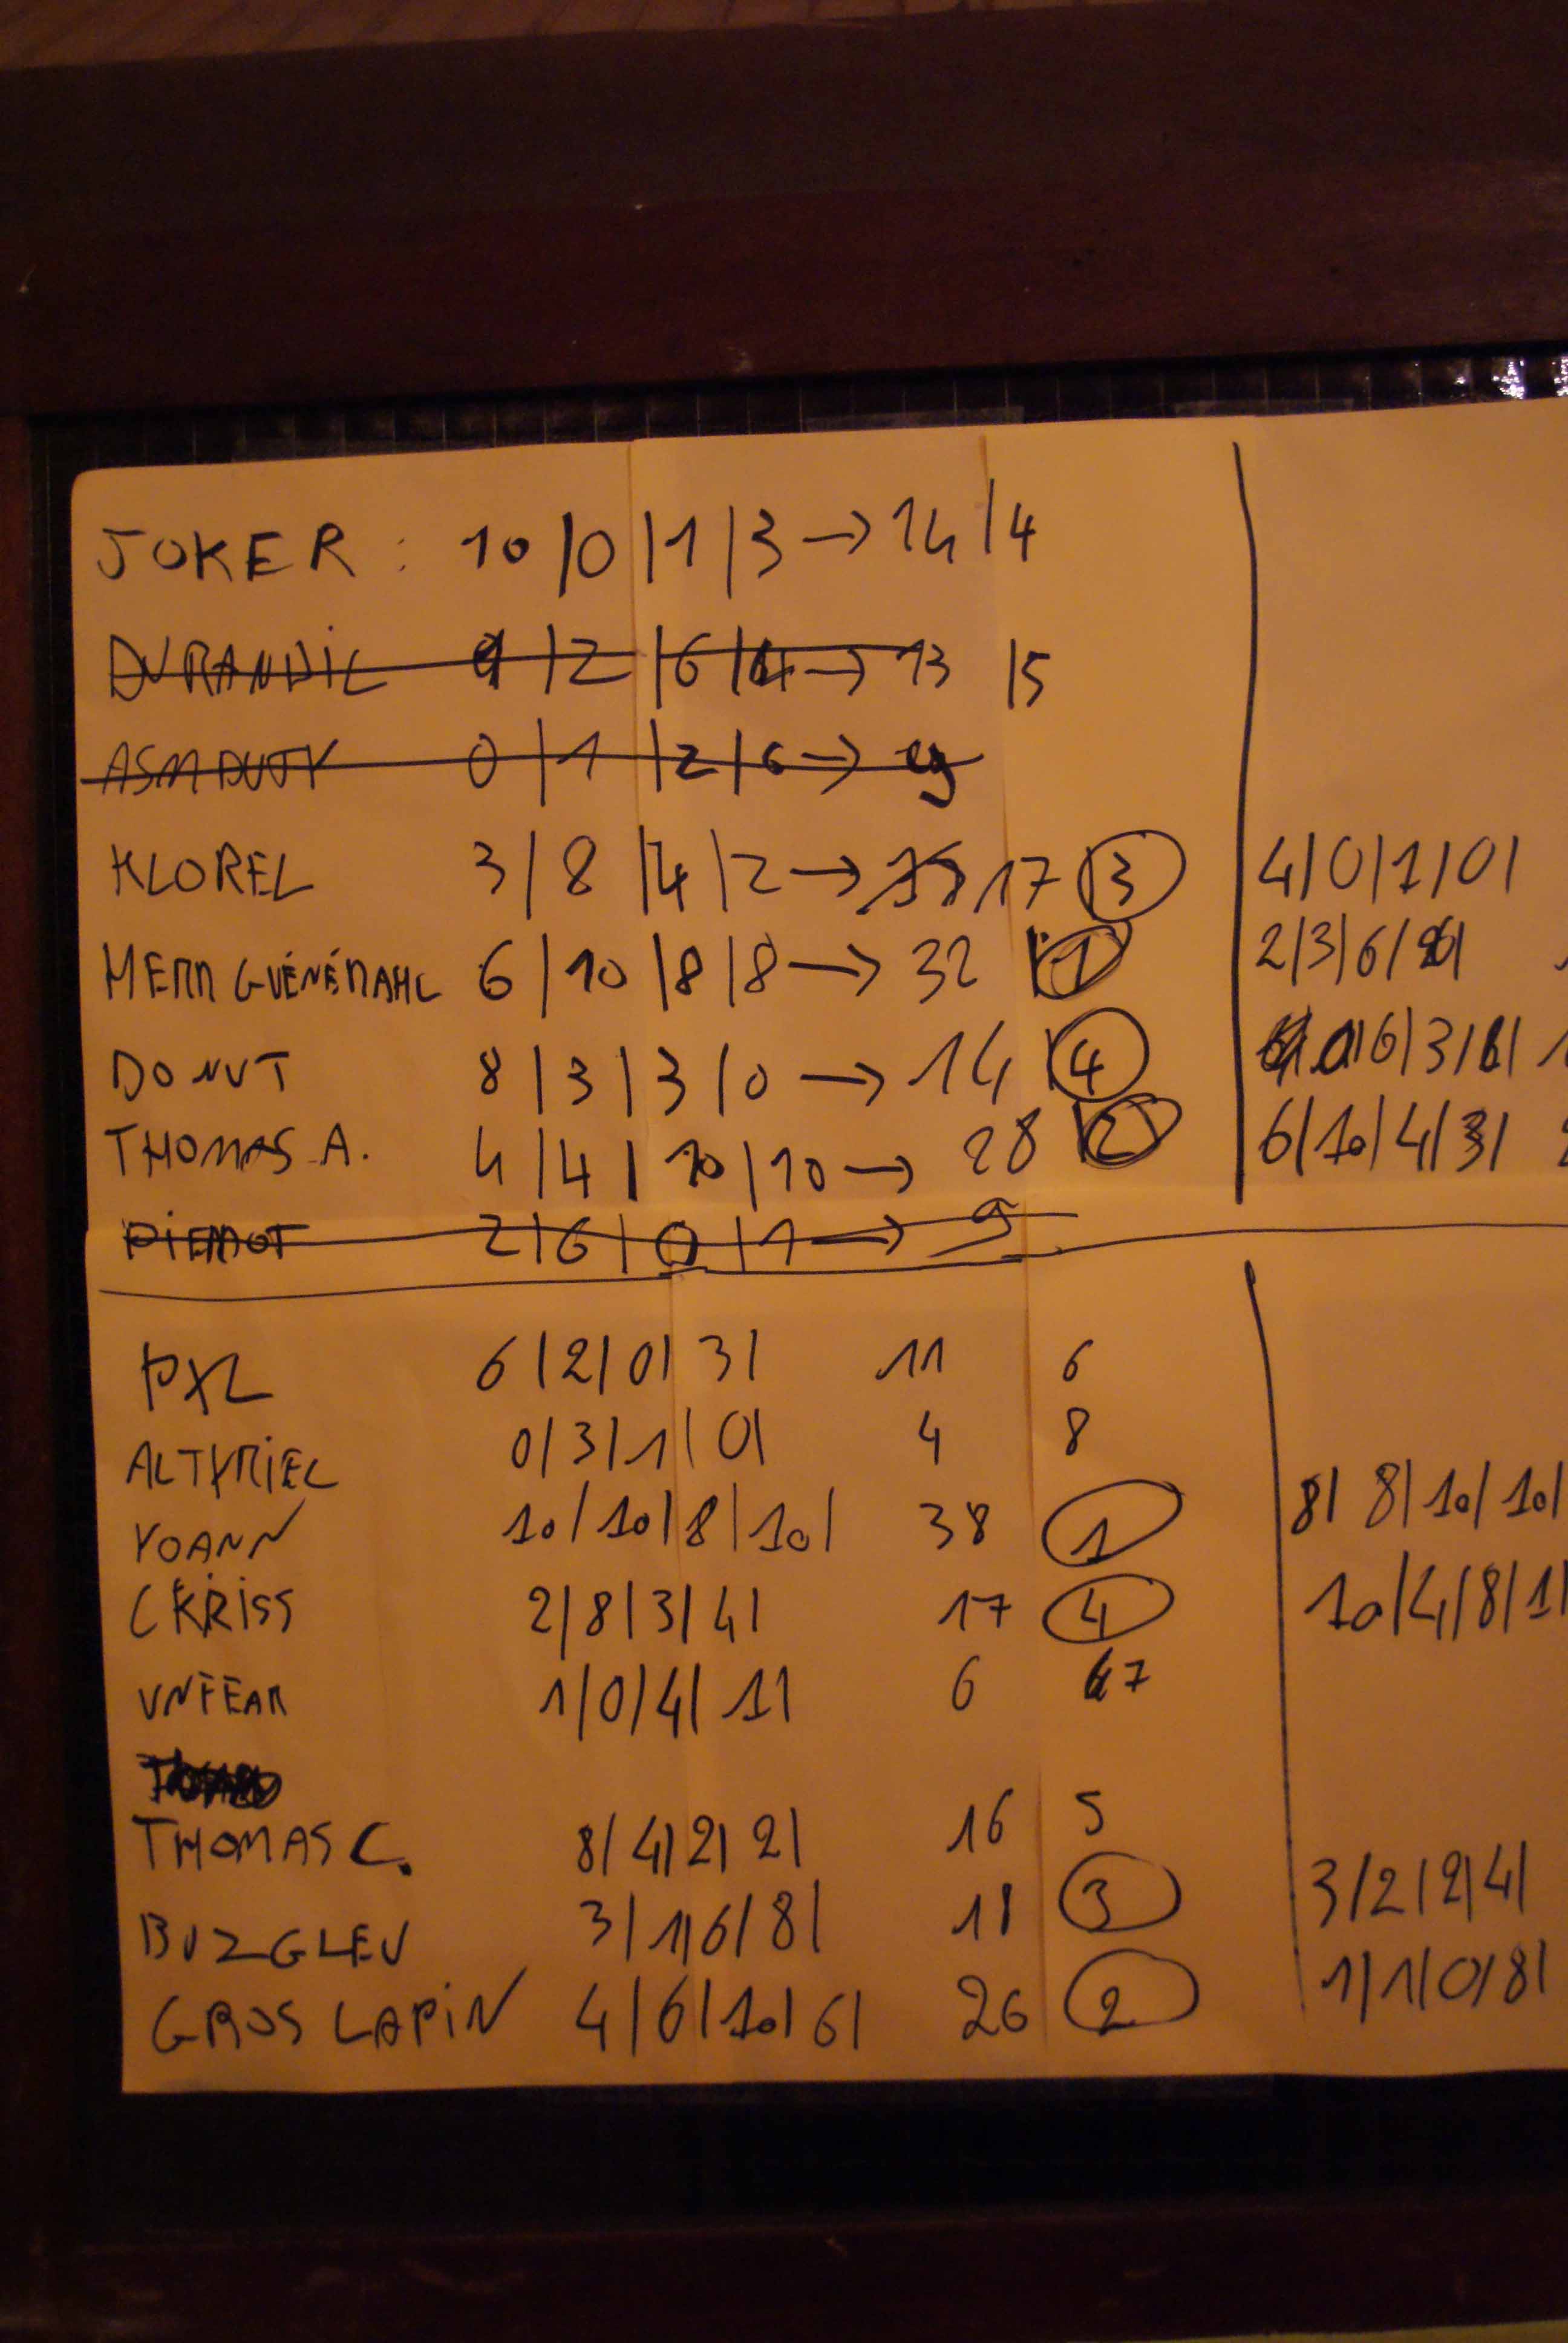 JOKER : 10 / 0 | 1 | 3 → 14 | 4
DURANDIL 1 | 2 | 6 | 4 → 13 | 5
ASMDUTY 0 | 1 | 2 | 6 → 9
KLOREL 3 | 8 | 4 | 2 → 17 | 3 4/0/1/0/
6 | 10 | 8 | 8 → 32 | 1 2/3/6/
DONUT 8 | 3 | 3 | 0 → 14 | 4 6/3/
THOMAS A. 4 | 4 | 10 | 10 → 28 | 2 6/10/4/3/
2 | 6 | 0 | 1 → 9
PXL 6 | 2 | 0 | 3 | 11 6
ALTYRIEL 0 / 3 / 1 | 0 | 4 8
YOANN 10 / 10 / 8 | 10 / 38 1 8/ 8/ 10/ 10/
CKRISS 2 / 8 / 3 / 4 | 17 4 10/4/8/1/
UNFEAR 1 / 0 / 4 / 1 | 6 7
THOMAS C. 8 / 4 | 2 | 2 | 16 5
BUZGLEU 3 | 1 | 6 / 8 | 18 3 3/2/2/4/
GROS LAPIN 4 / 6 / 10 / 6 | 26 2 1/1/0/8/